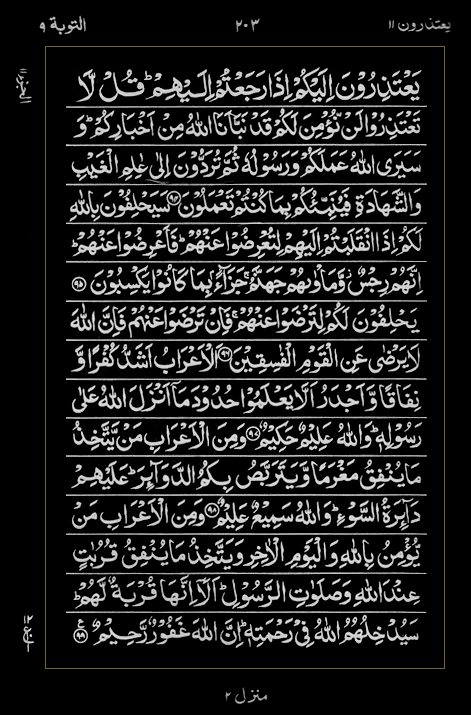 یعتذرون ۱۱
۲۰۳
التوبة ۹
یَعْتَذِرُوْنَ اِلَیْكُمْ اِذَا رَجَعْتُمْ اِلَیْهِمْ ؕ قُلْ لَّا
تَعْتَذِرُوْا لَنْ نُّؤْمِنَ لَكُمْ قَدْ نَبَّاَنَا اللّٰهُ مِنْ اَخْبَارِكُمْ ؕ وَ
سَیَرَی اللّٰهُ عَمَلَكُمْ وَرَسُوْلُهٗ ثُمَّ تُرَدُّوْنَ اِلٰی عٰلِمِ الْغَیْبِ
وَالشَّهَادَةِ فَیُنَبِّئُكُمْ بِمَا كُنْتُمْ تَعْمَلُوْنَ ۹۴ سَیَحْلِفُوْنَ بِاللّٰهِ
لَكُمْ اِذَا انْقَلَبْتُمْ اِلَیْهِمْ لِتُعْرِضُوْا عَنْهُمْ ؕ فَاَعْرِضُوْا عَنْهُمْ ؕ
اِنَّهُمْ رِجْسٌ ؗ وَّمَاْوٰىهُمْ جَهَنَّمُ ۚ جَزَآءًۢ بِمَا كَانُوْا یَكْسِبُوْنَ ۹۵
یَحْلِفُوْنَ لَكُمْ لِتَرْضَوْا عَنْهُمْ ۚ فَاِنْ تَرْضَوْا عَنْهُمْ فَاِنَّ اللّٰهَ
لَا یَرْضٰی عَنِ الْقَوْمِ الْفٰسِقِیْنَ ۹۶ اَلْاَعْرَابُ اَشَدُّ كُفْرًا وَّ
نِفَاقًا وَّاَجْدَرُ اَلَّا یَعْلَمُوْا حُدُوْدَ مَاۤ اَنْزَلَ اللّٰهُ عَلٰی
رَسُوْلِهٖ ؕ وَاللّٰهُ عَلِیْمٌ حَكِیْمٌ ۹۷ وَمِنَ الْاَعْرَابِ مَنْ یَّتَّخِذُ
مَا یُنْفِقُ مَغْرَمًا وَّیَتَرَبَّصُ بِكُمُ الدَّوَآئِرَ ؕ عَلَیْهِمْ
دَآئِرَةُ السَّوْءِ ؕ وَاللّٰهُ سَمِیْعٌ عَلِیْمٌ ۹۸ وَمِنَ الْاَعْرَابِ مَنْ
یُّؤْمِنُ بِاللّٰهِ وَالْیَوْمِ الْاٰخِرِ وَیَتَّخِذُ مَا یُنْفِقُ قُرُبٰتٍ
عِنْدَ اللّٰهِ وَصَلَوٰتِ الرَّسُوْلِ ؕ اَلَاۤ اِنَّهَا قُرْبَةٌ لَّهُمْ ؕ
سَیُدْخِلُهُمُ اللّٰهُ فِیْ رَحْمَتِهٖ ؕ اِنَّ اللّٰهَ غَفُوْرٌ رَّحِیْمٌ ۹۹
منزل ۲